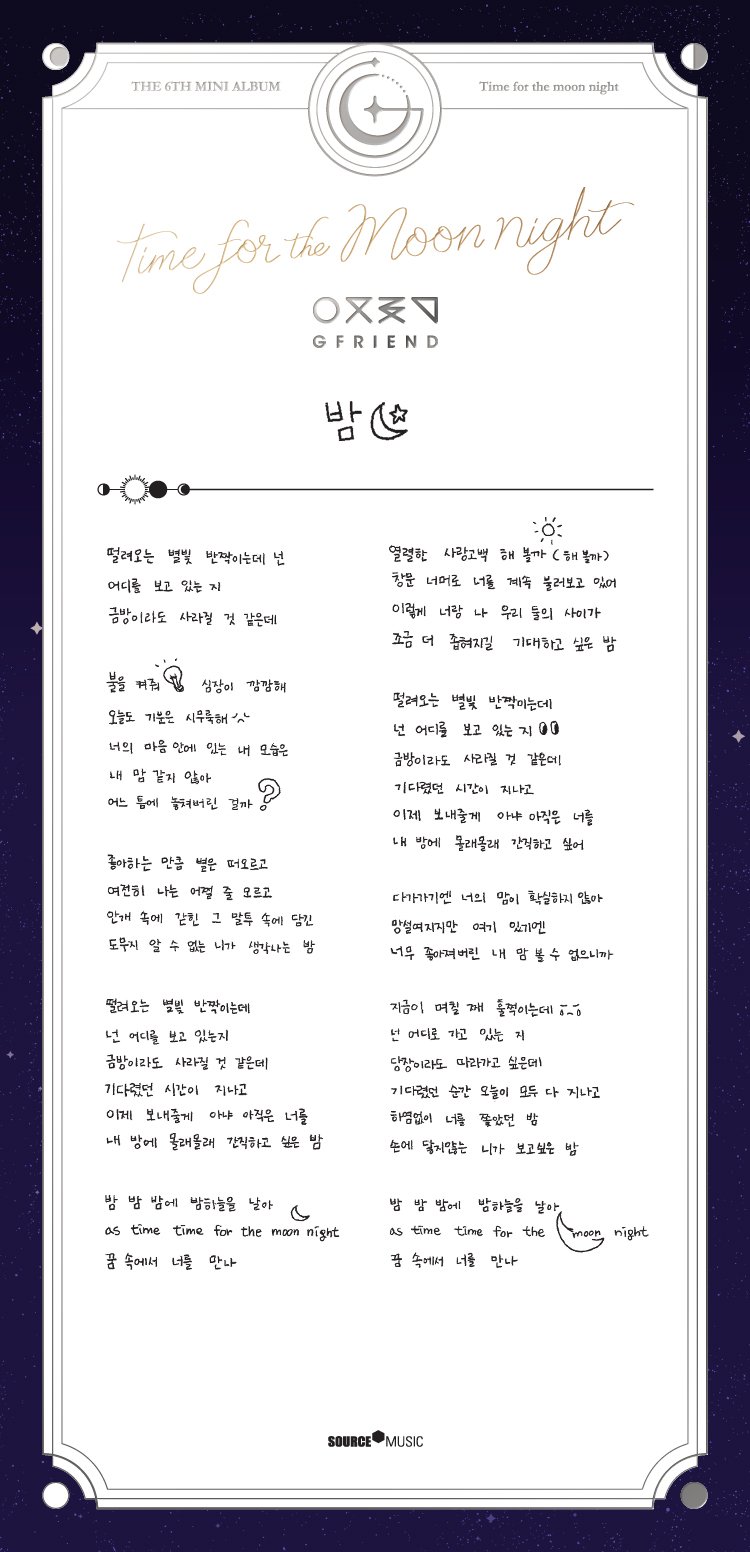 THE 6TH MINI ALBUM
Time for the moon night
Time for the Moon night
GFRIEND
밤
떨려오는 별빛 반짝이는데 넌
어디를 보고 있는 지
금방이라도 사라질 것 같은데
불을 켜줘 심장이 깜깜해
오늘도 기분은 시무룩해
너의 마음 안에 있는 내 모습은
내 맘 같지 않아
어느 틈에 놓쳐버린 걸까?
좋아하는 만큼 별은 떠오르고
여전히 나는 어쩔 줄 모르고
안개 속에 갇힌 그 말투 속에 담긴
도무지 알 수 없는 니가 생각나는 밤
떨려오는 별빛 반짝이는데
넌 어디를 보고 있는지
금방이라도 사라질 것 같은데
기다렸던 시간이 지나고
이제 보내줄게 아냐 아직은 너를
내 방에 몰래몰래 간직하고 싶은 밤
밤 밤 밤에 밤하늘을 날아
as time time for the moon night
꿈 속에서 너를 만나
열렬한 사랑고백 해 볼까 (해 볼까)
창문 너머로 너를 계속 불러보고 있어
이렇게 너랑 나 우리 둘의 사이가
조금 더 좁혀지길 기대하고 싶은 밤
떨려오는 별빛 반짝이는데
넌 어디를 보고 있는 지
금방이라도 사라질 것 같은데
기다렸던 시간이 지나고
이제 보내줄게 아냐 아직은 너를
내 방에 몰래몰래 간직하고 싶어
다가가기엔 너의 맘이 확실하지 않아
망설여지지만 여기 있기엔
너무 좋아져버린 내 맘 볼 수 없으니까
지금이 며칠 째 훌쩍이는데
넌 어디로 가고 있는 지
당장이라도 따라가고 싶은데
기다렸던 순간 오늘이 모두 다 지나고
하염없이 너를 쫓았던 밤
손에 닿지않는 니가 보고싶은 밤
밤 밤 밤에 밤하늘을 날아
as time time for the moon night
꿈 속에서 너를 만나
SOURCE MUSIC